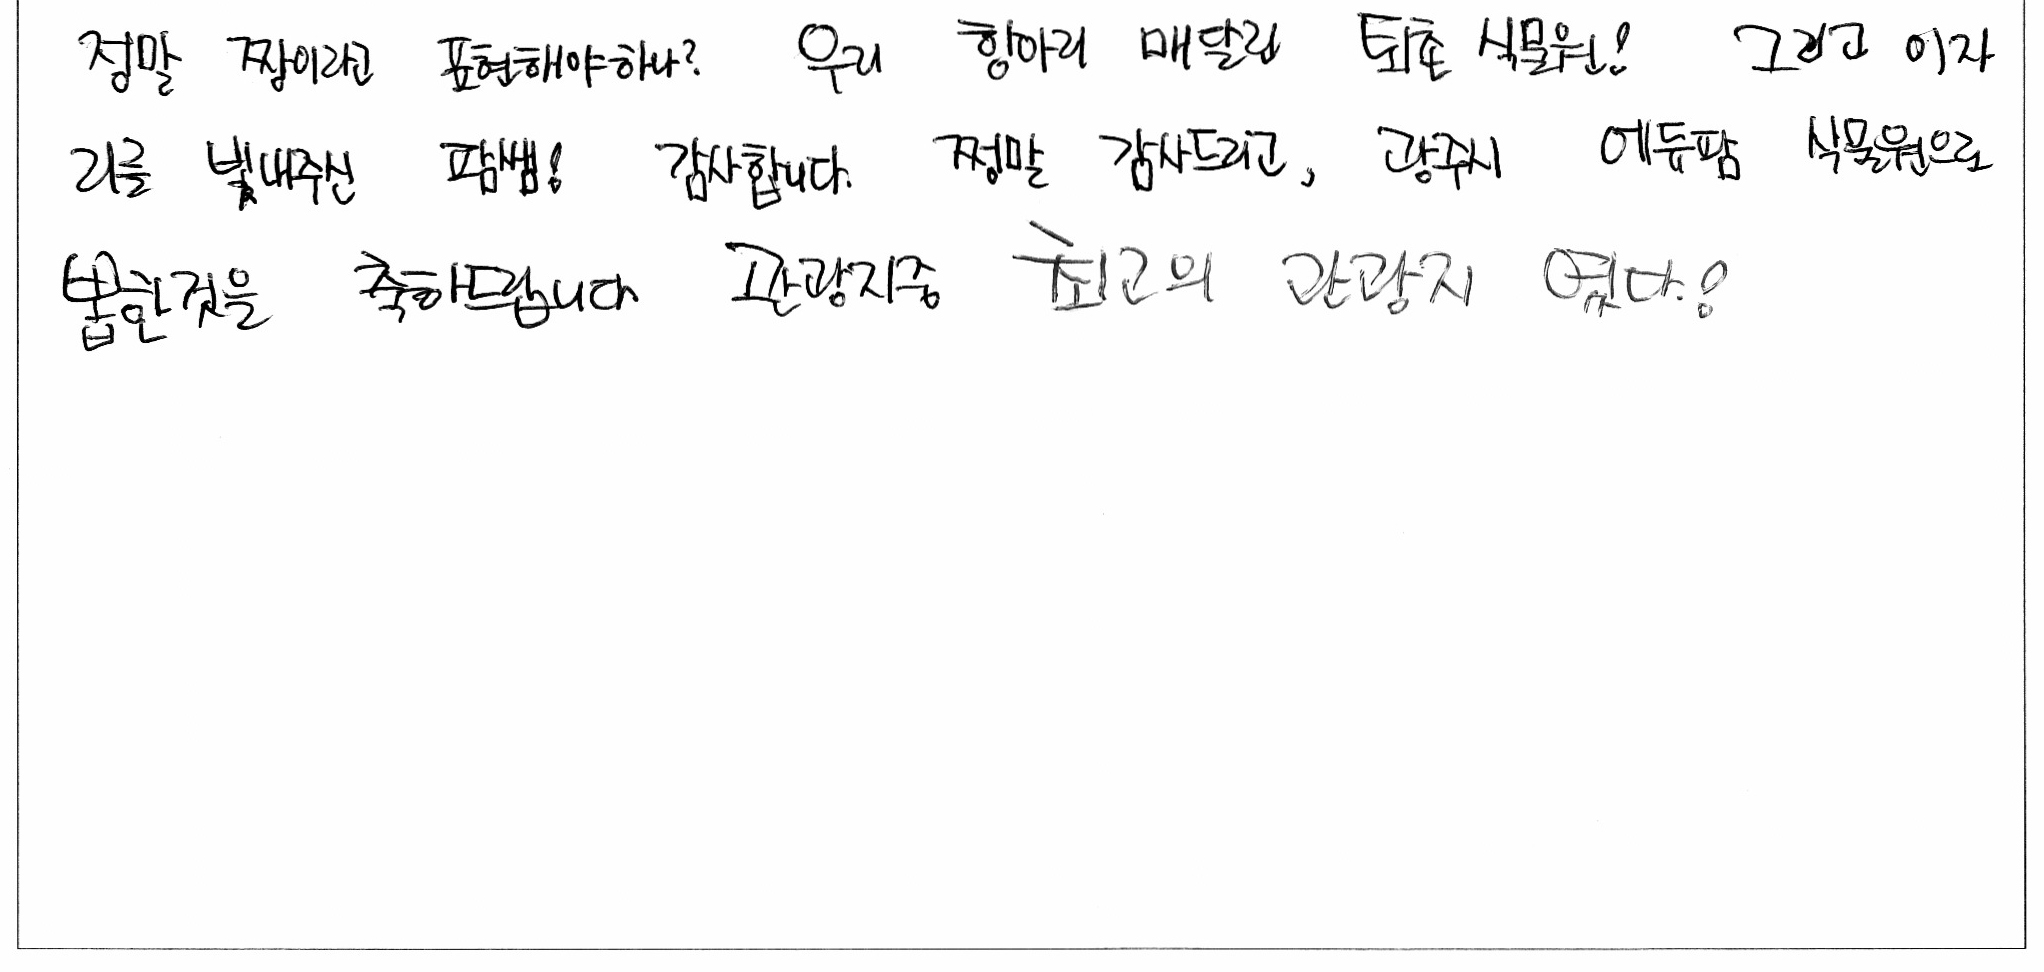 정말 짱이라고 표현해야하나? 우리 항아리 매달린 퇴촌 식물원! 그리고 이자
리를 빛내주신 팜쌤! 감사합니다. 쩡말 감사드리고, 광주시 에듀팜 식물원으로
봅한것을 축하드립니다 관광지중 최고의 관광지 였다!